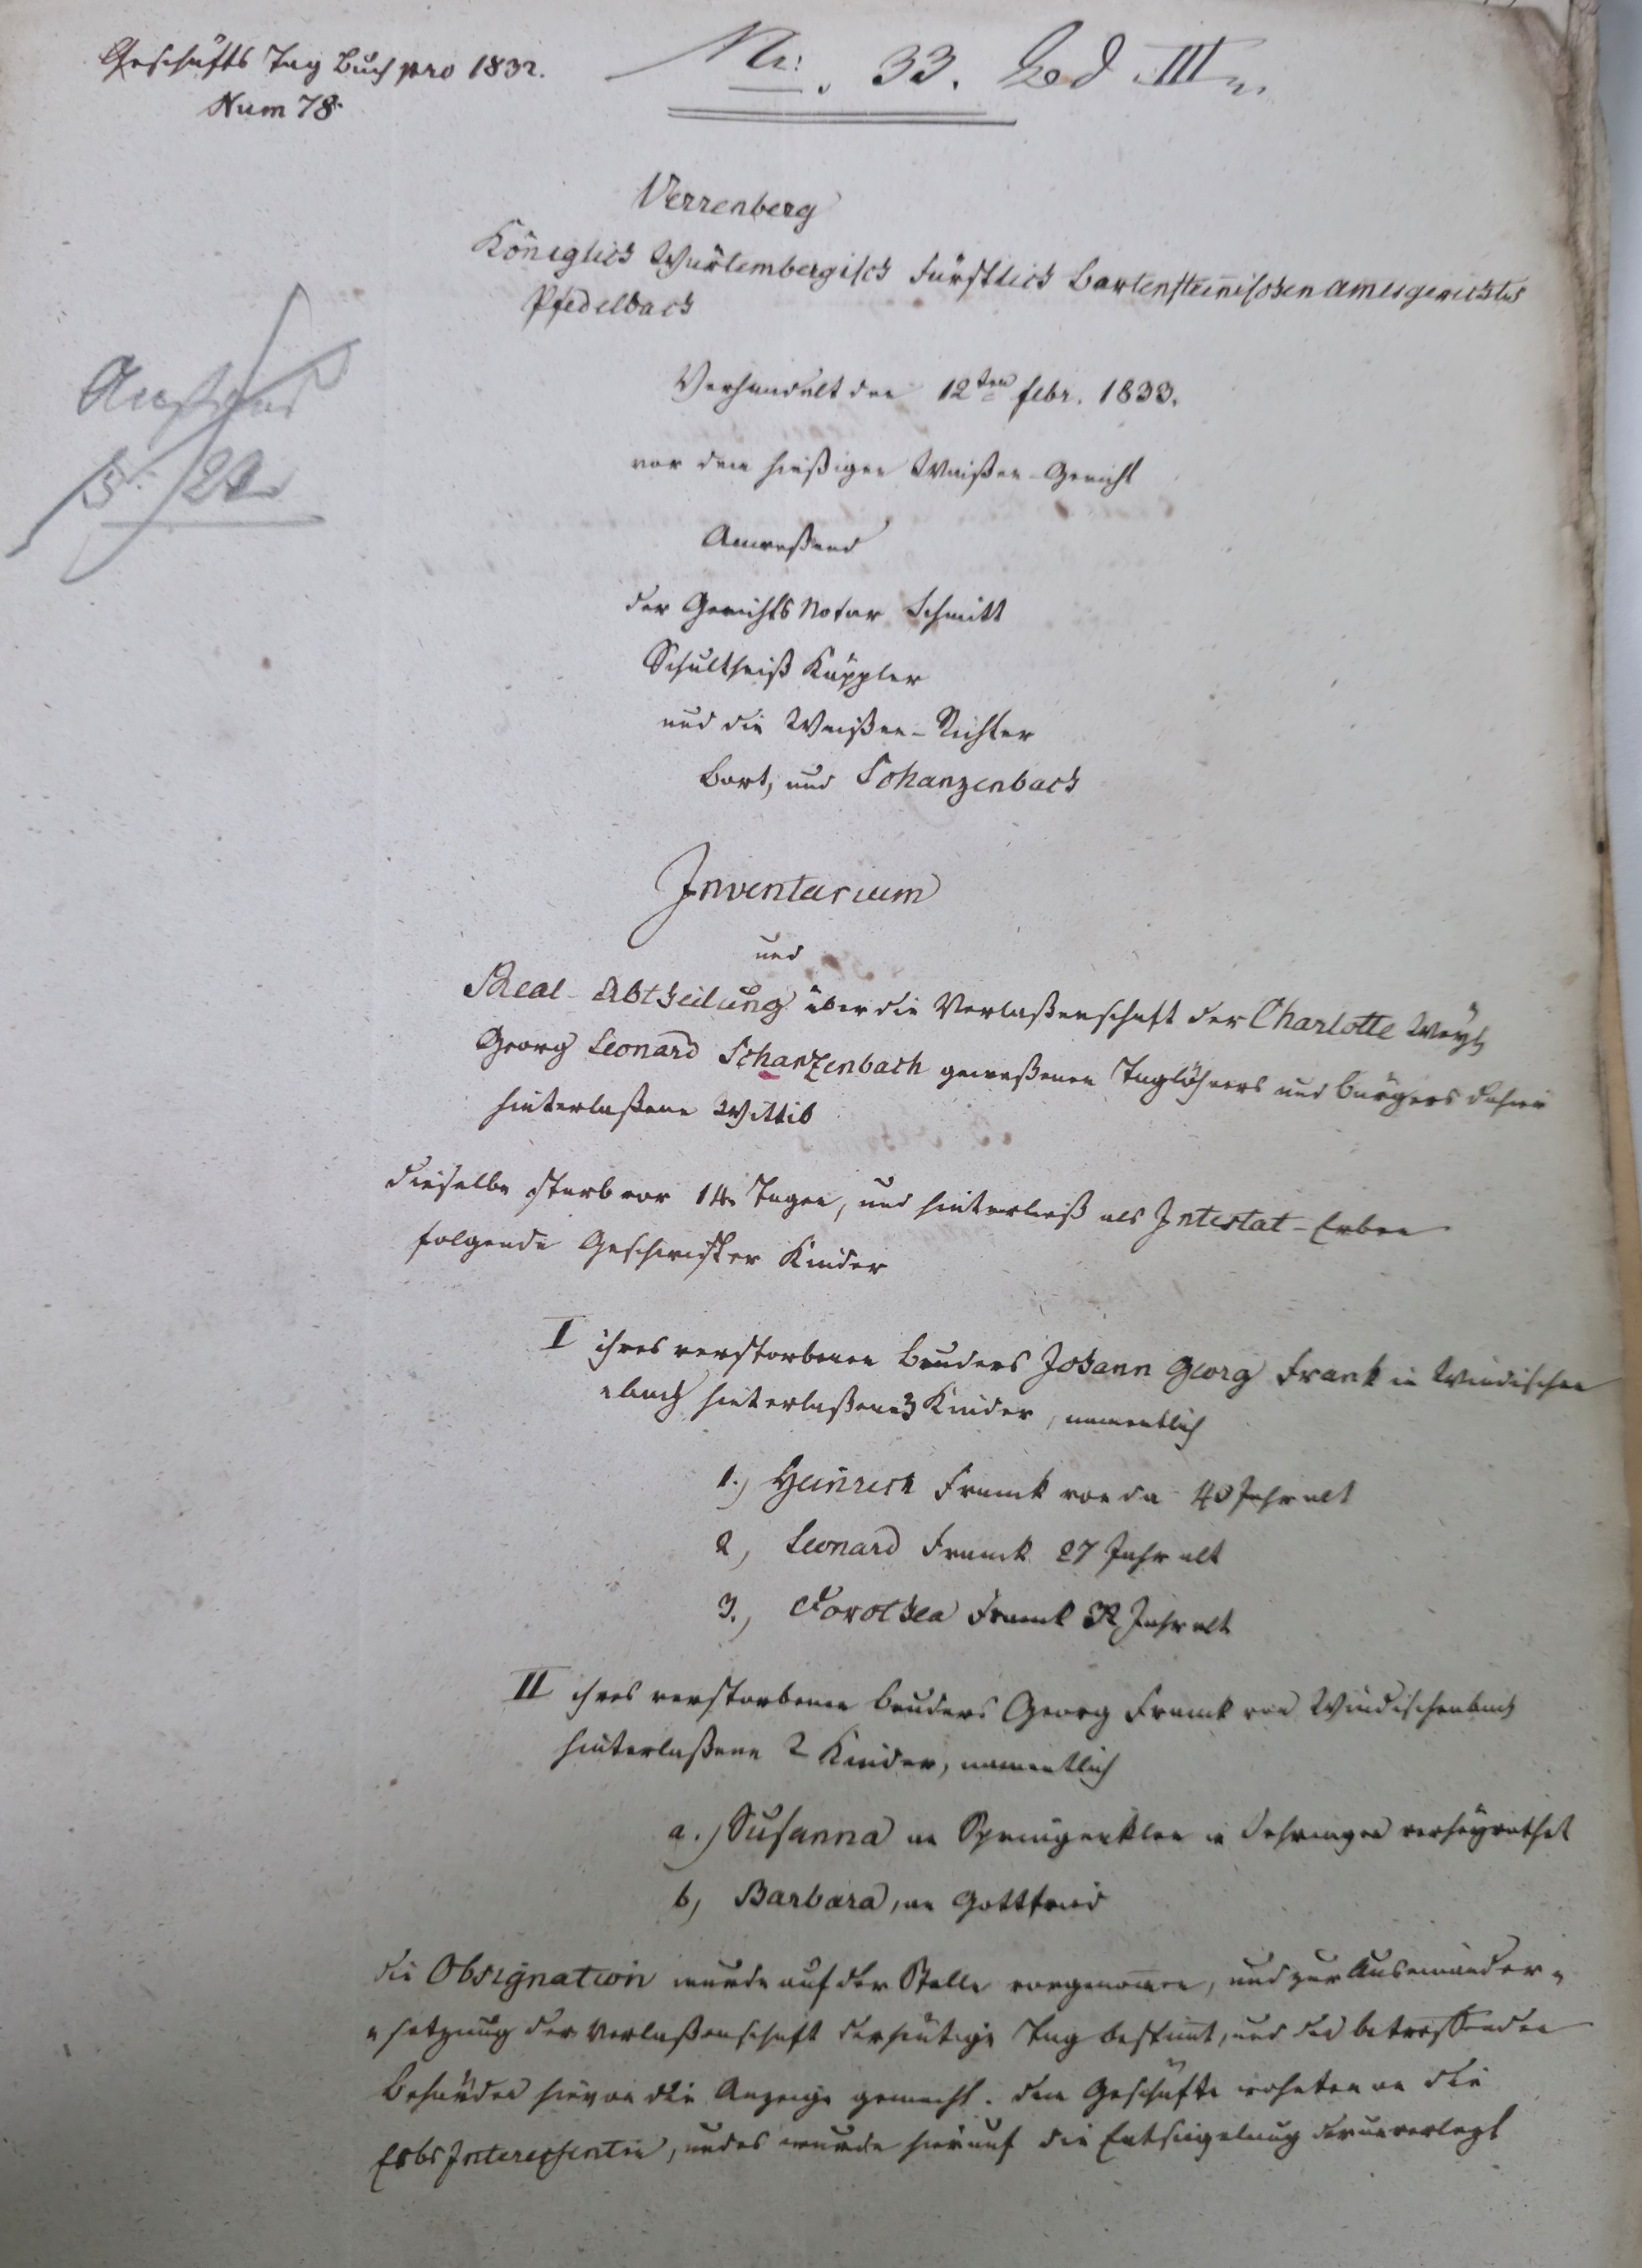 Geschäfts Tag Buch pro 1832.
Num 78.
Nr. 33. III
Verrenberg
Königlich Würtembergisch Fürstlich Bartensteinischen Amtsgerichts
Pfedelbach
Verhandelt den 12ten Febr. 1833.
vor dem hießigen Waißen-Gericht
Anweßend
der Gerichts Notar Schmitt
Schultheiß Käppler
und die Waißen-Richter
Bort, und Schanzenbach
Inventarium
und
Real-Abtheilung über die Verlaßenschaft der Charlotte Weyl.
Georg Leonard Schanzenbach geweßenen Taglöhners und Bürgers dahier
hinterlaßene Wittib
dieselbe starb vor 14 Tagen, und hinterließ als Intestat-Erben
folgende Geschwister Kinder
I ihres verstorbenen Bruders Johann Georg Frank in Windischen
=bach hinterlaßene 3 Kinder, namentlich
1.) Heinrich Franck von da 40 Jahr alt
2, Leonard Franck 27 Jahr alt
3., Dorothea Franck 32 Jahr alt
II ihres verstorbenen Bruders Georg Franck von Windischenbach
hinterlaßene 2 Kinder, namentlich
a.) Susanna an Springenklee in Oehringen verheyrathet
b, Barbara, an Gottfried
die Obsignation wurde auf der Stelle vorgenomen, und zur Auseinander=
=setzung der Verlaßenschaft der heutige Tag bestimt, und den betreffenden
Behörden hievon die Anzeige gemacht. Dem Geschäfte wohnten an die
Erbs Interessenten, und es wurde hierauf die Entsiegelung der unverlezt